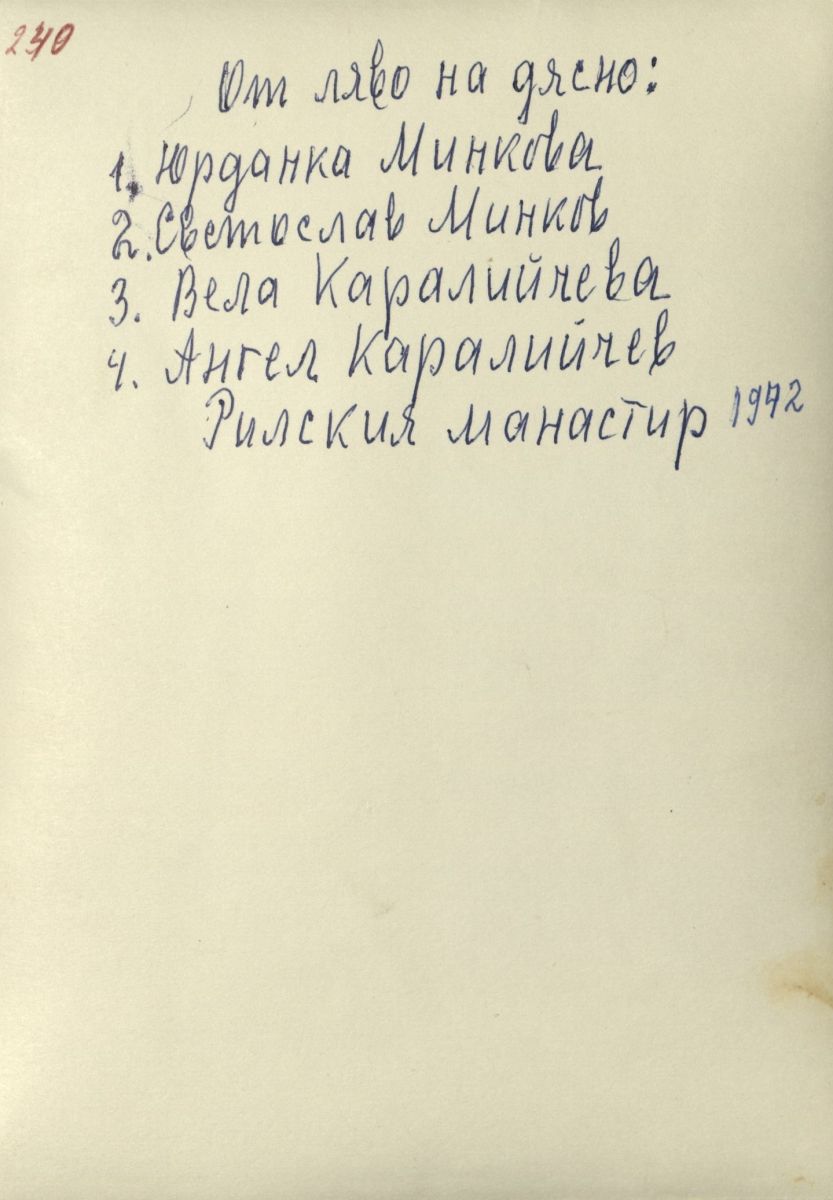 240
От ляво на дясно:
1. Юрданка Минкова
2. Светослав Минков
3. Вела Каралийчева
4. Ангел Каралийчев
Рилския манастир 1942